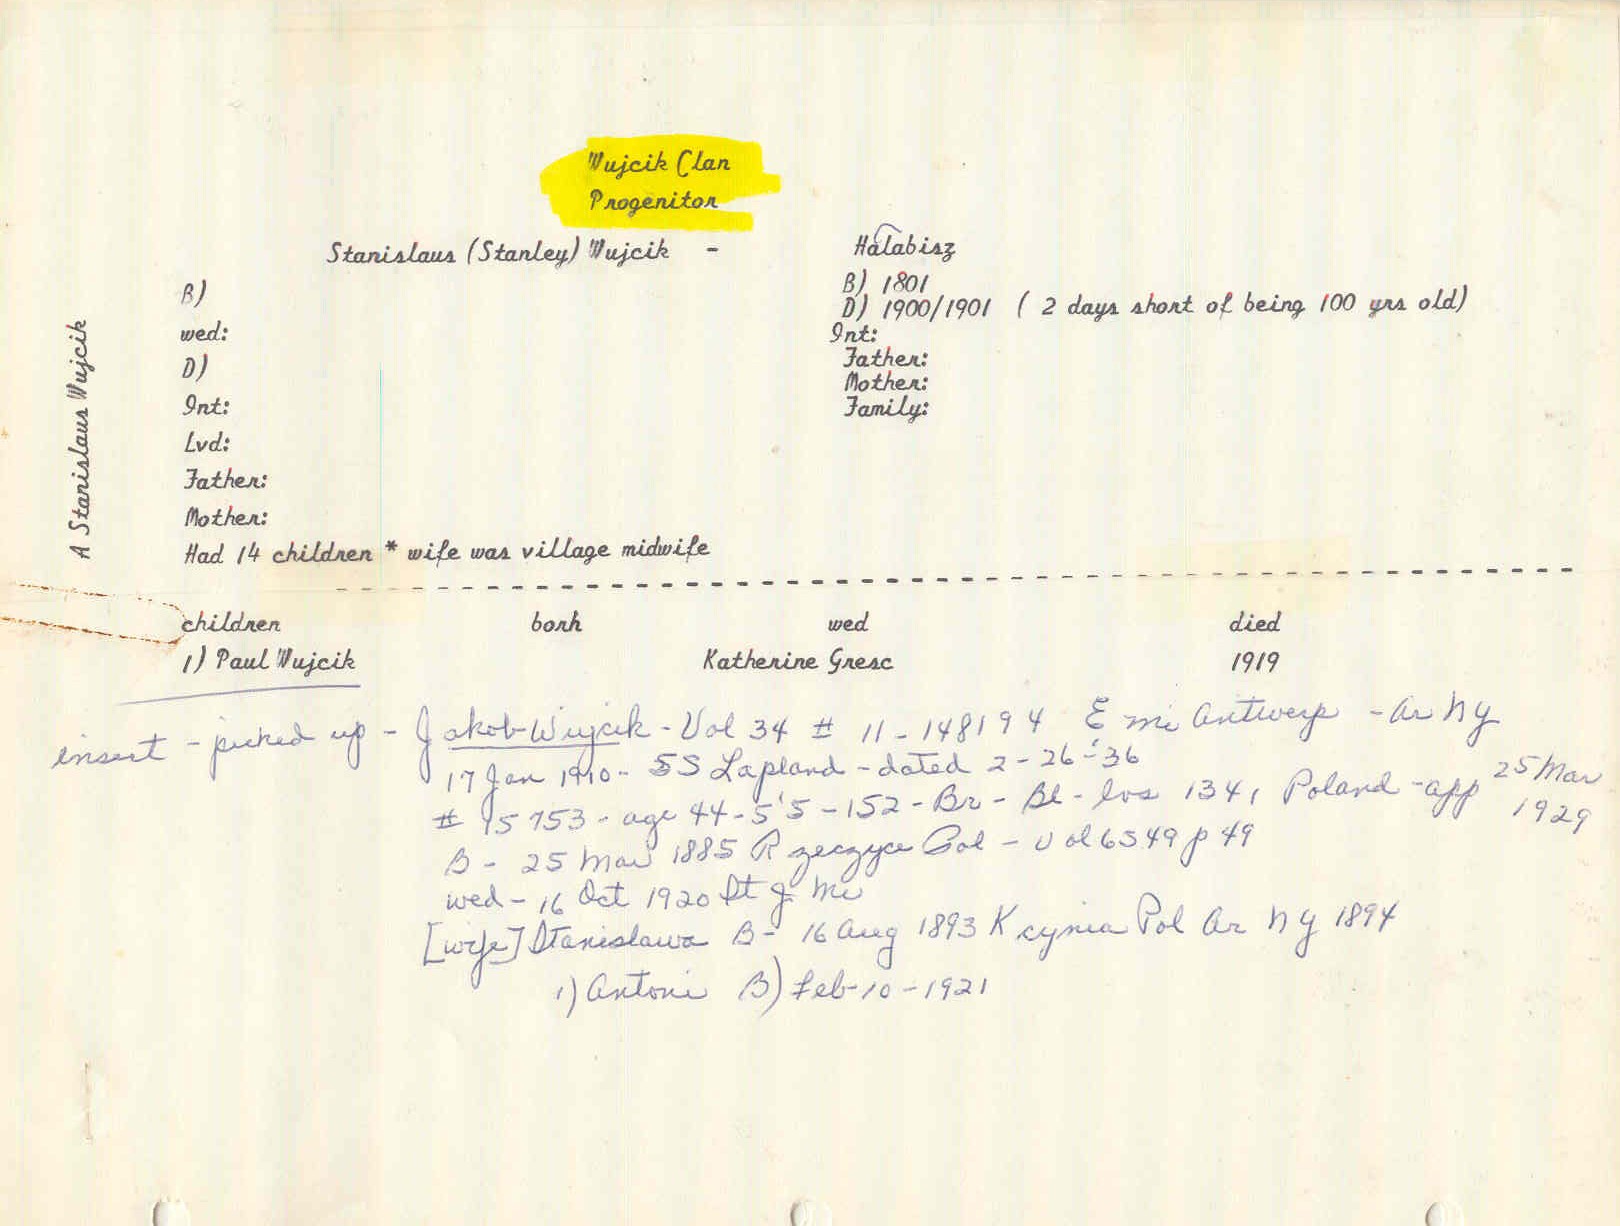 Wujcik Clan
Progenitor
Stanislaus (Stanley) Wujcik - Halabisz
B) B) 1801
D) 1900/1901 ( 2 days short of being 100 yrs old)
wed: Int:
D) Father:
Mother:
Int: Family:
Lvd:
Father:
Mother:
Had 14 children * wife was village midwife
A Stanislaus Wujcik
children born wed died
1) Paul Wujcik Katherine Gresc 1919
insert - picked up - Jakob Wujcik - Vol 34 # 11-148194 E mi Antwerp - Ar NY
17 Jan 1910 - SS Lapland - dated 2-26-'36
# 15753 - age 44 - 5'5 - 152 - Br - Bl - lvs 134, Poland - app 25 Mar 1929
B - 25 Mar 1885 Rzeczyce Pol - Vol 6549 p 49
wed - 16 Oct 1920 St J. Mi
[wife] Stanislawa B - 16 Aug 1893 Kcynia Pol Ar NY 1894
1) Antoni B) Feb-10-1921